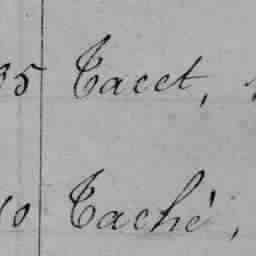 95 Tacet,
10 Taché,